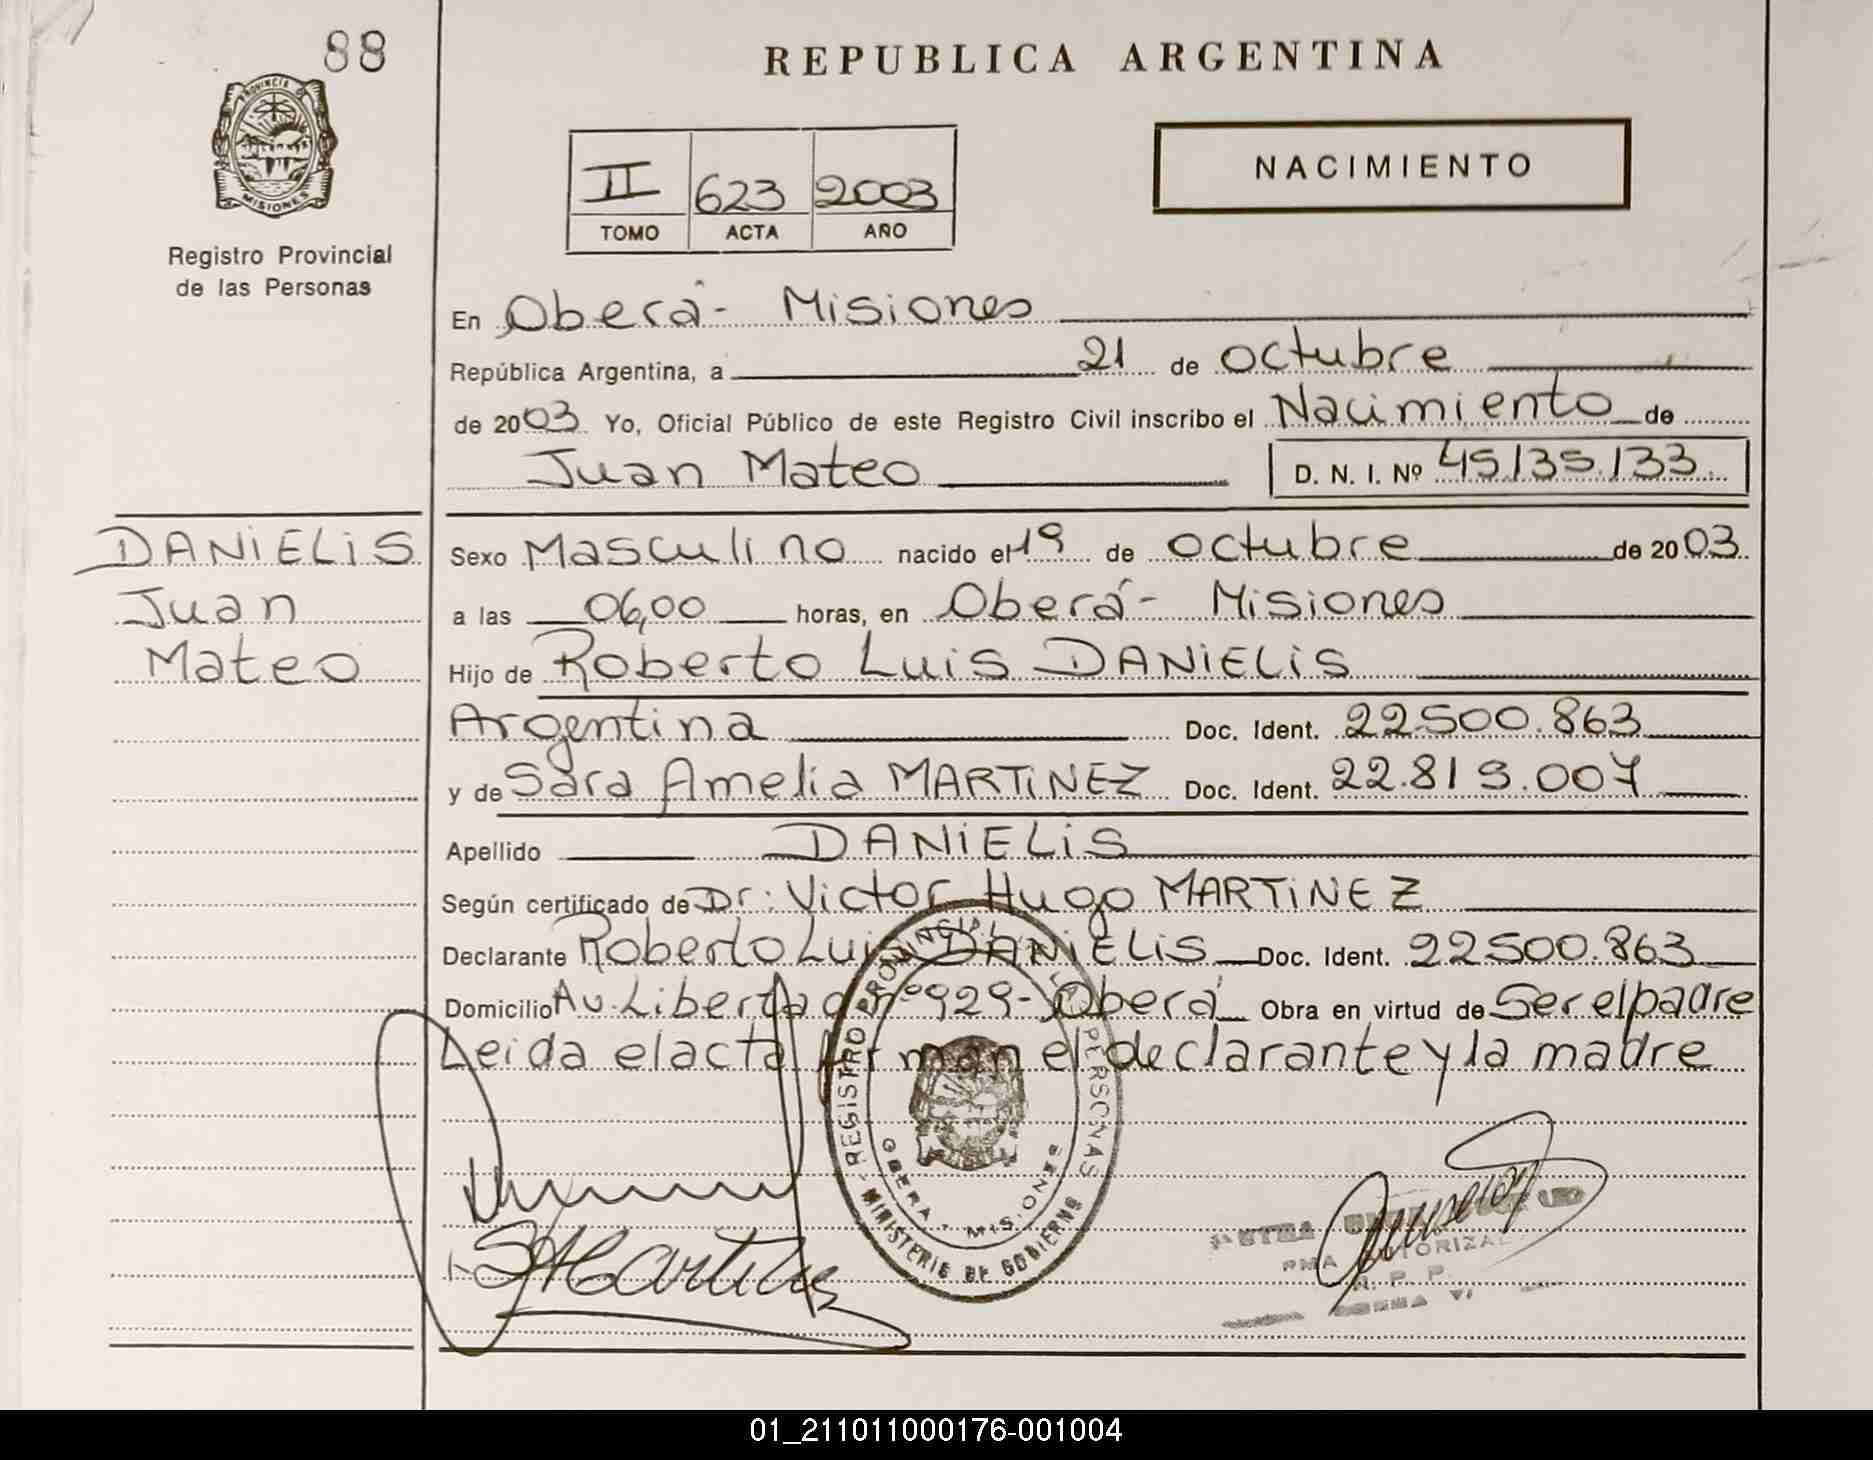 88
REPUBLICA ARGENTINA
PROVINCIA D
MISIONES
Registro Provincial
de las Personas
II 623 2003
TOMO ACTA AÑO
NACIMIENTO
En Oberá - Misiones
República Argentina, a 21 de octubre
de 2003 Yo, Oficial Público de este Registro Civil inscribo el Nacimiento de
Juan Mateo D. N. I. Nº 45.135.133.
DANIELIS
Juan
Mateo
Sexo Masculino nacido el 19 de octubre de 2003
a las 06,00 horas, en Oberá - Misiones
Hijo de Roberto Luis DANIELIS
Argentina Doc. Ident. 22.500.863
y de Sara Amelia MARTINEZ Doc. Ident. 22.819.007
Apellido DANIELIS
Según certificado de Dr: Victor Hugo MARTINEZ
Declarante Roberto Luis DANIELIS Doc. Ident. 22500.863
Domicilio Av. Libertad nº 929 - Oberá Obra en virtud de Ser el padre
Leida el acta firman el declarante y la madre
REGISTRO PROVINCIAL DE LAS PERSONAS
OBERA - MISIONES
MINISTERIO DE GOBIERNO
R. P. P.
01_211011000176-001004